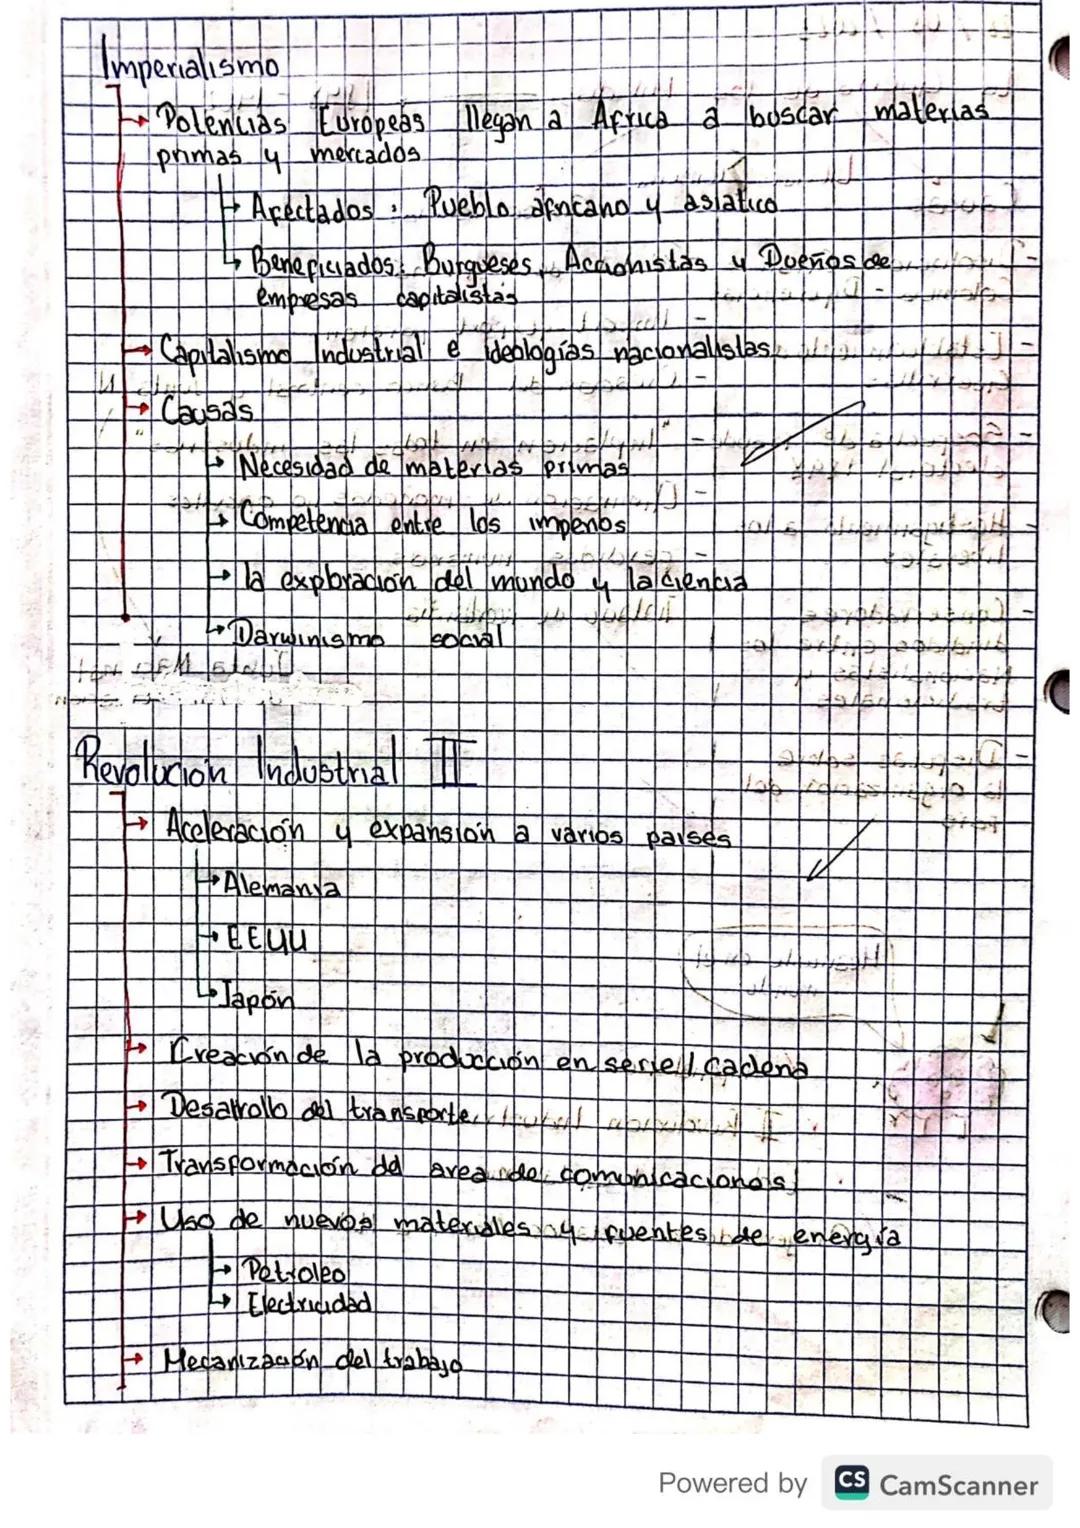 Imperialismo
→ Potencias Europeas llegan a África a buscar materias
primas y mercados
→ Afectados: Pueblo africano y asiatico
→ Beneficiados: Burgueses, Accionistas y Dueños de
empresas capitalistas
→ Capitalismo Industrial e ideologías nacionalistas
→ Causas
→ Necesidad de materias primas
→ Competencia entre los imperios
→ la exploración del mundo y la ciencia
→ Darwinismo social
Revolución Industrial II
→ Aceleración y expansión a varios paises
→ Alemania
→ EEUU
→ Japón
→ Creación de la producción en serie // cadena
→ Desarrollo del transporte
→ Transformación del area de comunicaciones
→ Uso de nuevos materiales y fuentes de energía
→ Petroleo
→ Electricidad
→ Mecanización del trabajo
Powered by CS CamScanner